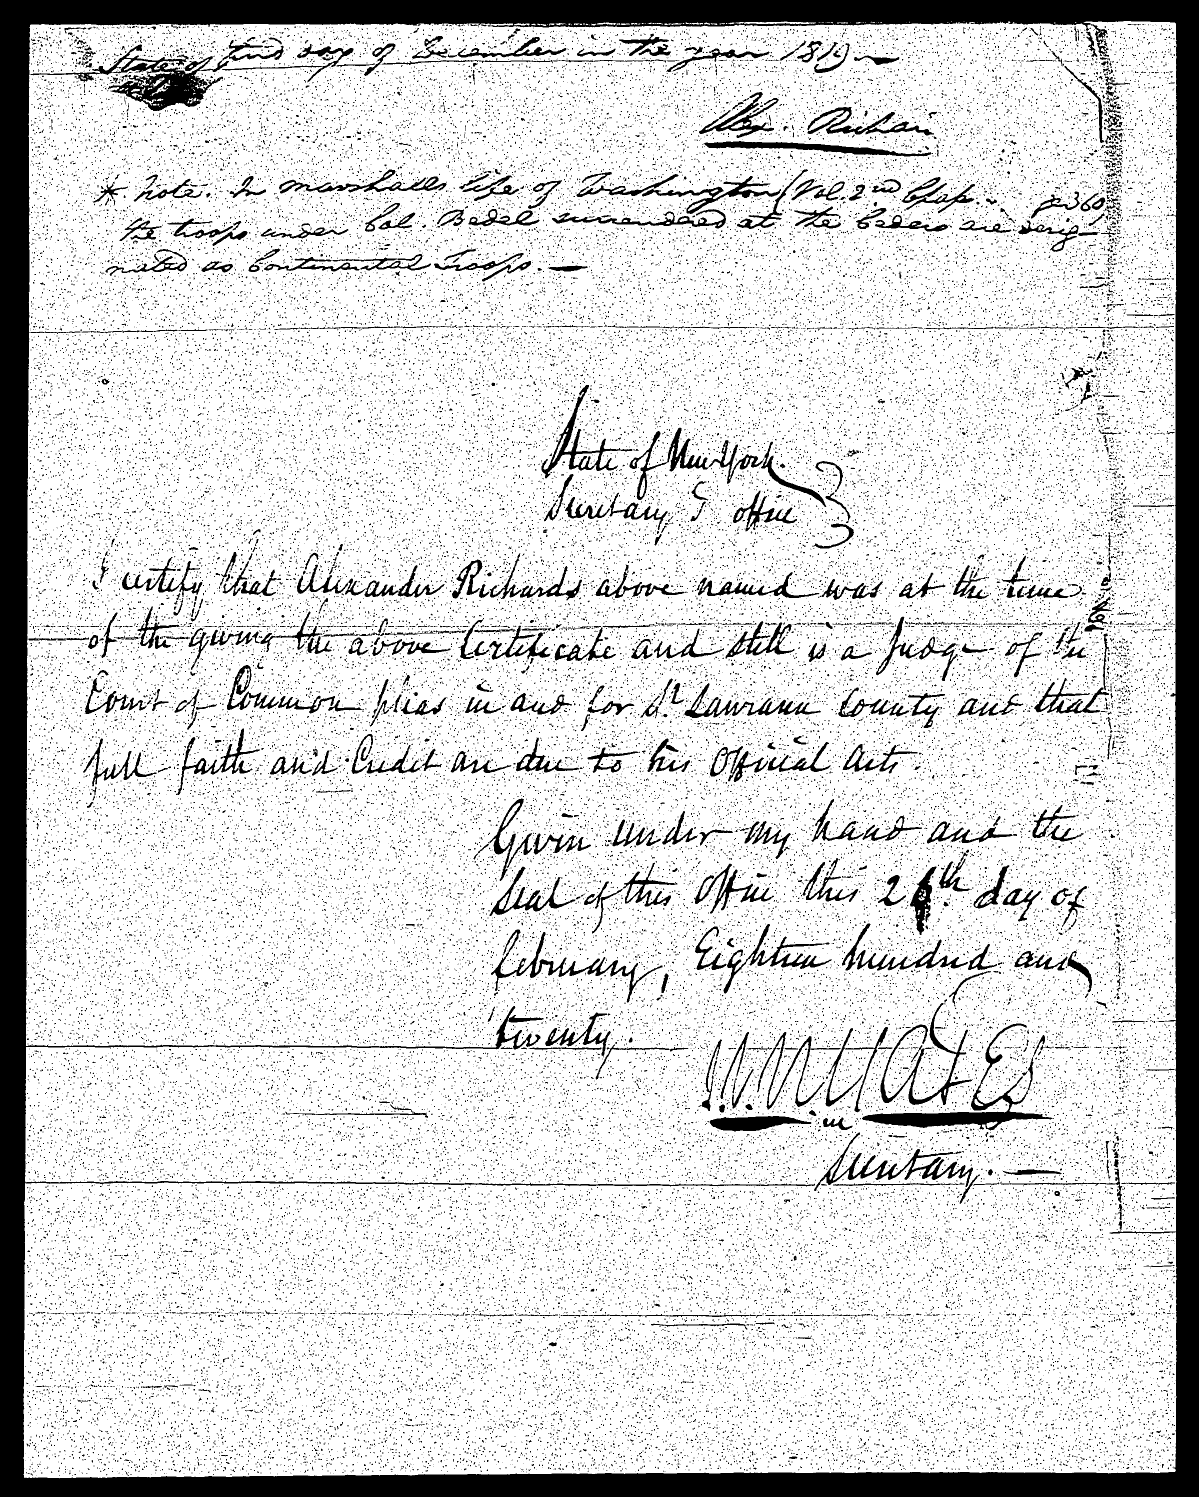 State of
day of December in the year 1819.—
Alex. Richar
* Note. In Marshalls life of Washington (Vol. 2nd Chap. pa 360,
the troops under Col. Bedel surrendered at the Ceders are desig-
nated as Continental Troops.—
State of New York.
Secretary's office
I certify that Alexander Richards above named was at the time
of the giving the above Certificate and still is a Judge of the
Court of Common pleas in and for St. Lawrance County and that
full faith and Credit are due to his Official Acts.
Given under my hand and the
Seal of this Office this 2 th. day of
February, Eighteen hundred and
twenty.
J. V. N. YATES
Secretary.—